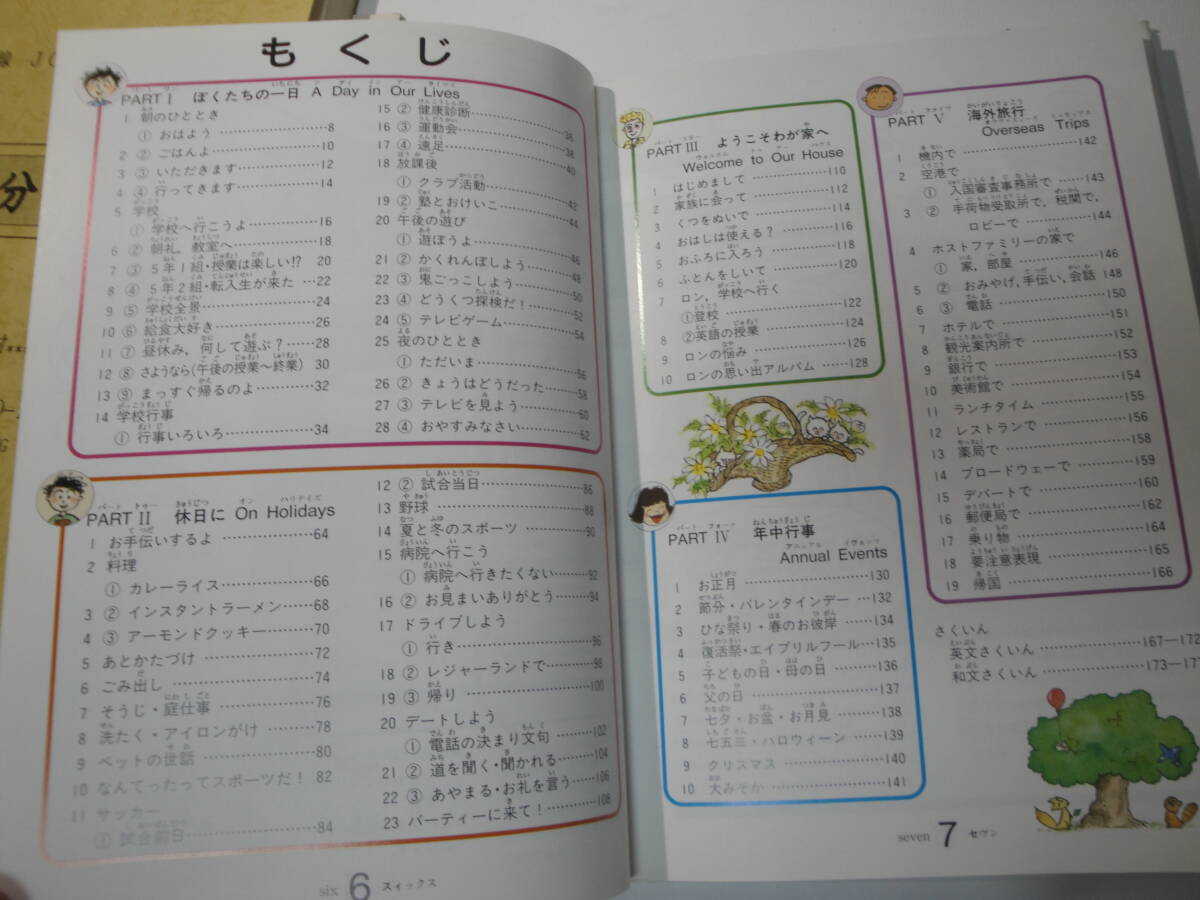 もくじ
PART I ぼくたちの一日 A Day in Our Lives
1 朝のひととき
① おはよう ……8
2 ② ごはんよ ……10
3 ③ いただきます ……12
4 ④ 行ってきます ……14
5 学校
① 学校へ行こうよ ……16
6 ② 朝礼，教室へ ……18
7 ③ 5年1組・授業は楽しい!? 20
8 ④ 5年2組・転入生が来た ……22
9 ⑤ 学校全景 ……24
10 ⑥ 給食大好き ……26
11 ⑦ 昼休み，何して遊ぶ？ ……28
12 ⑧ さようなら(午後の授業〜終業) 30
13 ⑨ まっすぐ帰るのよ ……32
14 学校行事
① 行事いろいろ ……34
15 ② 健康診断 ……36
16 ③ 運動会 ……38
17 ④ 遠足 ……38
18 放課後 ……40
① クラブ活動 ……42
19 ② 塾とおけいこ ……44
20 午後の遊び
① 遊ぼうよ ……46
21 ② かくれんぼしよう ……48
22 ③ 鬼ごっこしよう ……50
23 ④ どうくつ探検だ！ ……52
24 ⑤ テレビゲーム ……54
25 夜のひととき
① ただいま ……56
26 ② きょうはどうだった ……58
27 ③ テレビを見よう ……60
28 ④ おやすみなさい ……62
PART II 休日に On Holidays
1 お手伝いするよ ……64
2 料理
① カレーライス ……66
3 ② インスタントラーメン ……68
4 ③ アーモンドクッキー ……70
5 あとかたづけ ……72
6 ごみ出し ……74
7 そうじ・庭仕事 ……76
8 洗たく・アイロンがけ ……78
9 ペットの世話 ……80
10 なんてったってスポーツだ！ 82
11 サッカー
① 試合前日 ……84
12 ② 試合当日 ……86
13 野球 ……88
14 夏と冬のスポーツ ……90
15 病院へ行こう
① 病院へ行きたくない ……92
16 ② お見まいありがとう ……94
17 ドライブしよう
① 行き ……96
18 ② レジャーランドで ……98
19 ③ 帰り ……100
20 デートしよう
① 電話の決まり文句 ……102
21 ② 道を聞く・聞かれる ……104
22 ③ あやまる・お礼を言う ……106
23 パーティーに来て！ ……108
six 6 スィックス
PART III ようこそわが家へ
Welcome to Our House
1 はじめまして ……110
2 家族に会って ……112
3 くつをぬいで ……114
4 おはしは使える？ ……116
5 おふろに入ろう ……118
6 ふとんをしいて ……120
7 ロン，学校へ行く
①登校 ……122
8 ②英語の授業 ……124
9 ロンの悩み ……126
10 ロンの思い出アルバム ……128
PART IV 年中行事
Annual Events
1 お正月 ……130
2 節分・バレンタインデー ……132
3 ひな祭り・春のお彼岸 ……134
4 復活祭・エイプリルフール ……135
5 子どもの日・母の日 ……136
6 父の日 ……137
7 七夕・お盆・お月見 ……138
8 七五三・ハロウィーン ……139
9 クリスマス ……140
10 大みそか ……141
PART V 海外旅行
Overseas Trips
1 機内で ……142
2 空港で
① 入国審査事務所で ……143
3 ② 手荷物受取所で，税関で，
ロビーで ……144
4 ホストファミリーの家で
① 家，部屋 ……146
5 ② おみやげ，手伝い，会話 148
6 ③ 電話 ……150
7 ホテルで ……151
8 観光案内所で ……152
9 銀行で ……153
10 美術館で ……154
11 ランチタイム ……155
12 レストランで ……156
13 薬局で ……158
14 ブロードウェーで ……159
15 デパートで ……160
16 郵便局で ……162
17 乗り物 ……164
18 要注意表現 ……165
19 帰国 ……166
さくいん
英文さくいん ……167—172
和文さくいん ……173—17
seven 7 セヴン
分